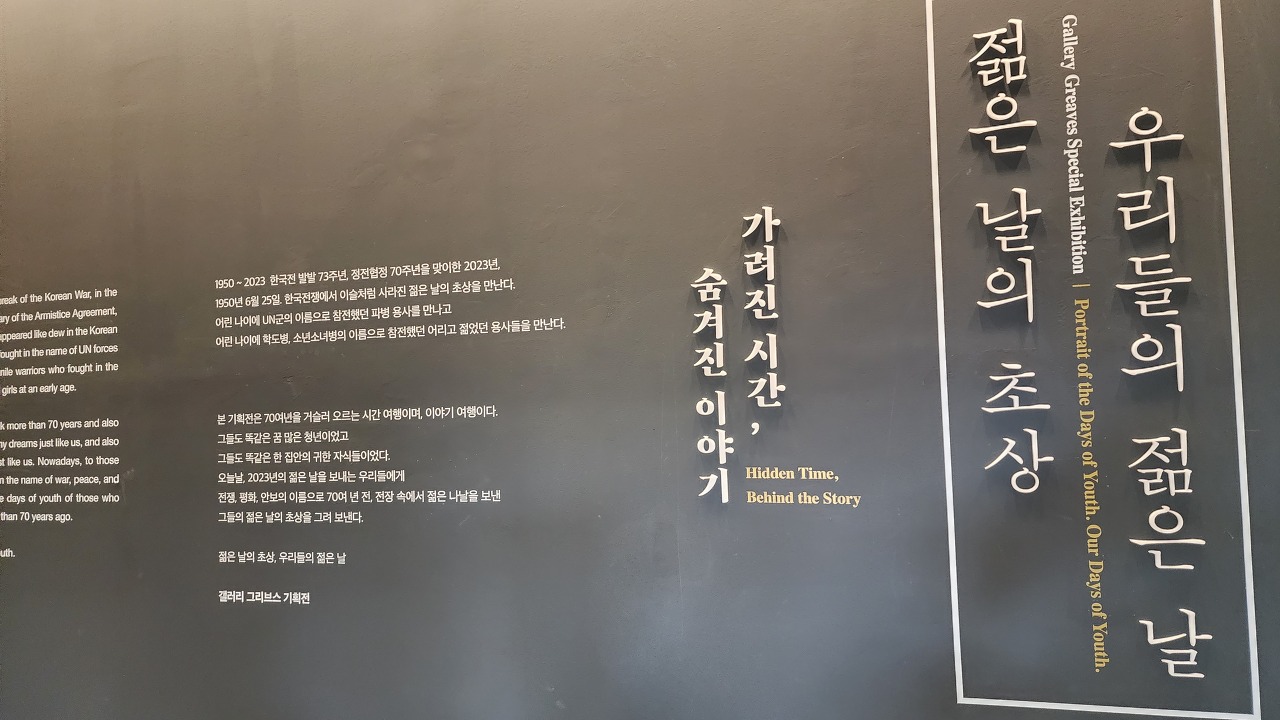 젊은 날의 초상
Gallery Greaves Special Exhibition | Portrait of the Days of Youth. Our Days of Youth.
우리들의 젊은 날
가려진 시간,
숨겨진 이야기
Hidden Time,
Behind the Story
1950 ~ 2023 한국전 발발 73주년, 정전협정 70주년을 맞이한 2023년,
1950년 6월 25일. 한국전쟁에서 이슬처럼 사라진 젊은 날의 초상을 만난다.
어린 나이에 UN군의 이름으로 참전했던 파병 용사를 만나고
어린 나이에 학도병, 소년소녀병의 이름으로 참전했던 어리고 젊었던 용사들을 만난다.
본 기획전은 70여년을 거슬러 오르는 시간 여행이며, 이야기 여행이다.
그들도 똑같은 꿈 많은 청년이었고
그들도 똑같은 한 집안의 귀한 자식들이었다.
오늘날, 2023년의 젊은 날을 보내는 우리들에게
전쟁, 평화, 안보의 이름으로 70여 년 전, 전장 속에서 젊은 나날을 보낸
그들의 젊은 날의 초상을 그려 보낸다.
젊은 날의 초상, 우리들의 젊은 날
갤러리 그리브스 기획전
of the Korean War, in the
of the Armistice Agreement,
like dew in the Korean
fought in the name of UN forces
warriors who fought in the
girls at an early age.
more than 70 years and also
dreams just like us, and also
like us. Nowadays, to those
the name of war, peace, and
days of youth of those who
than 70 years ago.